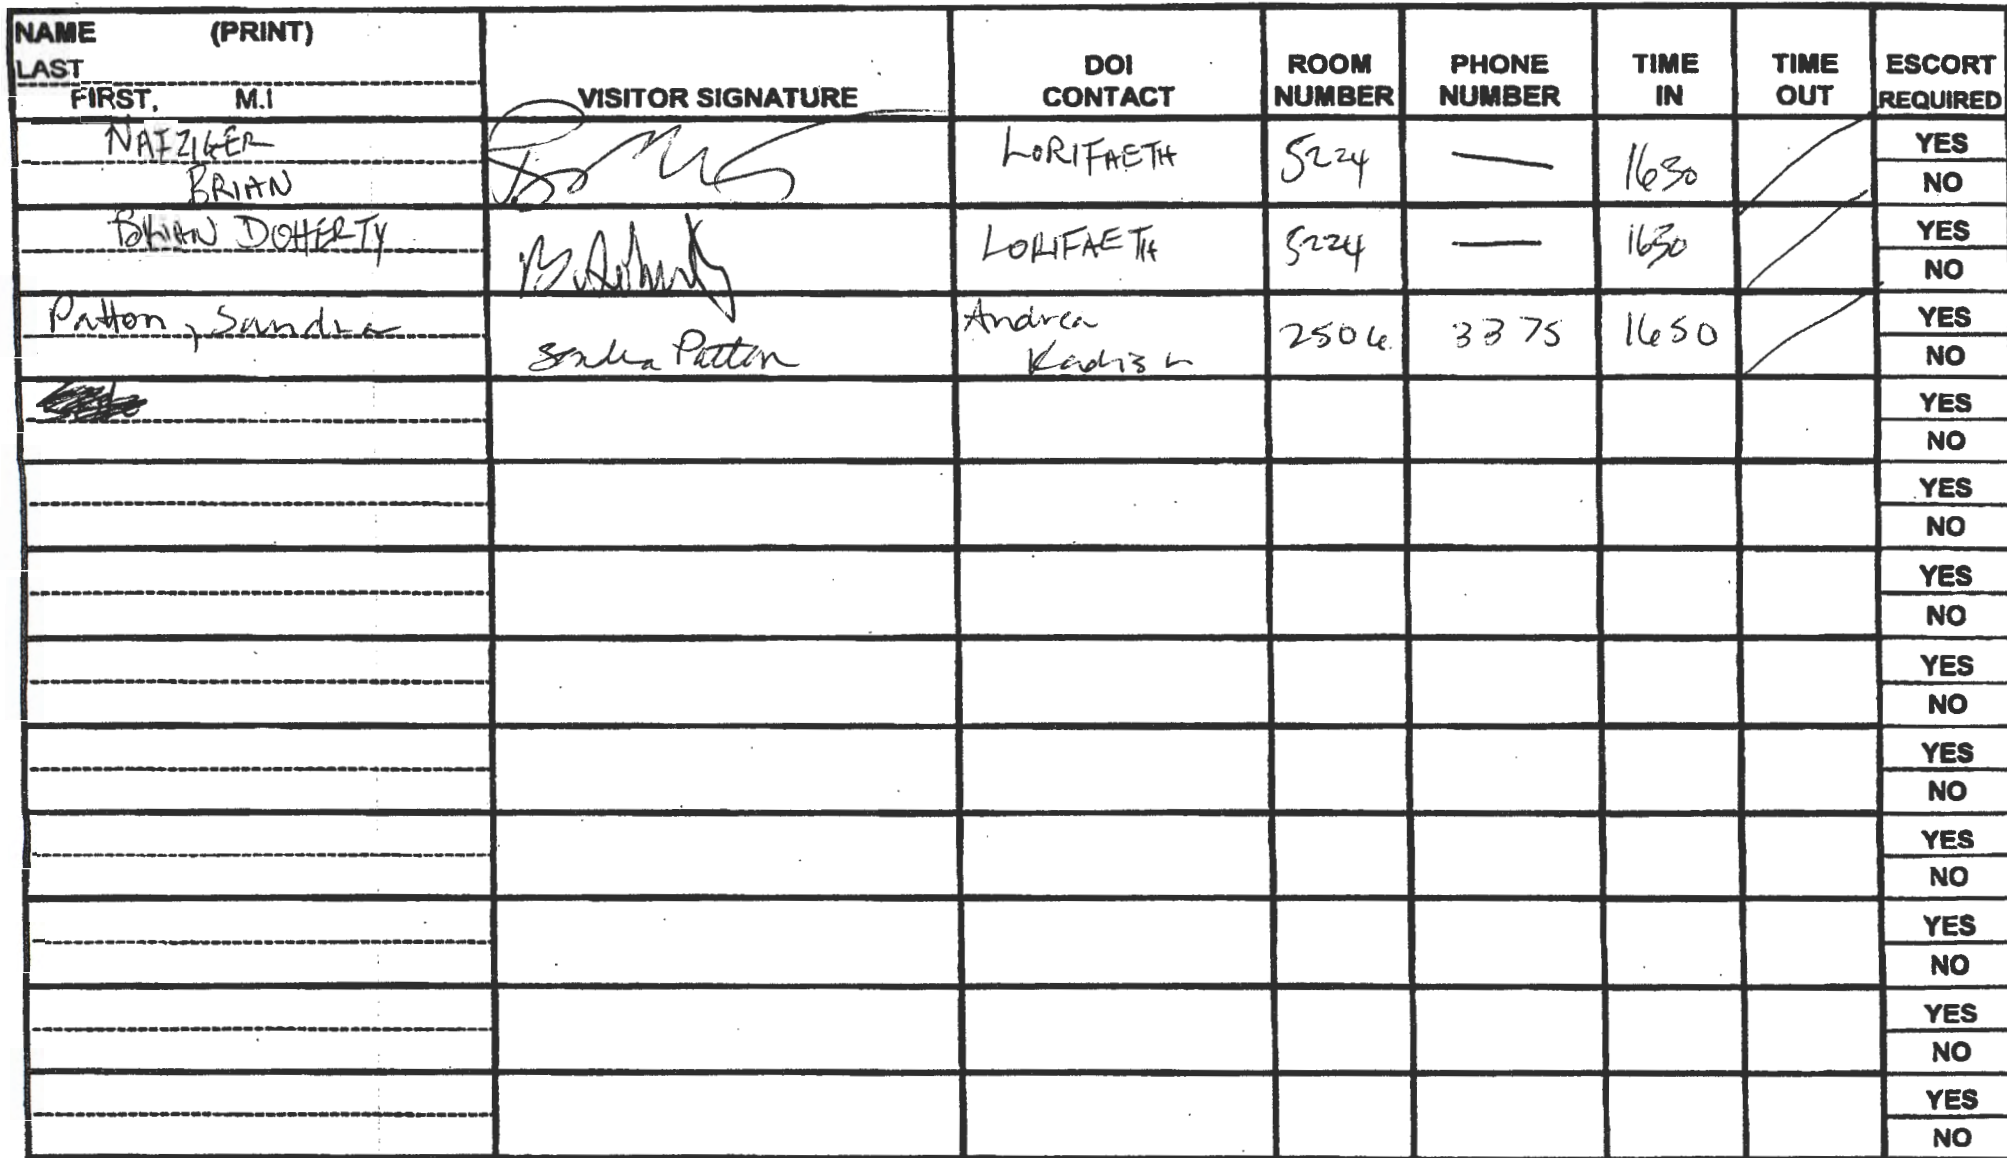 NAME (PRINT)
LAST
FIRST, M.I
VISITOR SIGNATURE
DOI
CONTACT
ROOM
NUMBER
PHONE
NUMBER
TIME
IN
TIME
OUT
ESCORT
REQUIRED
NAFZIGER
BRIAN
LORI FAETH
5224
—
1630
YES
NO
BRIAN DOHERTY
LORI FAETH
5224
—
1630
YES
NO
Patton, Sandra
Sandra Patton
Andrea
Kadish
2506
3375
1650
YES
NO
YES
NO
YES
NO
YES
NO
YES
NO
YES
NO
YES
NO
YES
NO
YES
NO
YES
NO